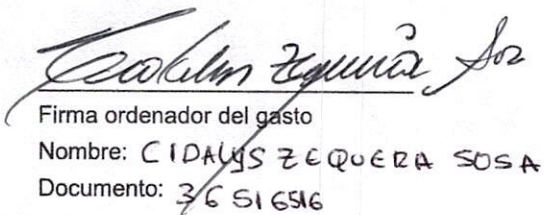 Firma ordenador del gasto
Nombre: CIDALYS ZEQUERA SOSA
Documento: 36516516